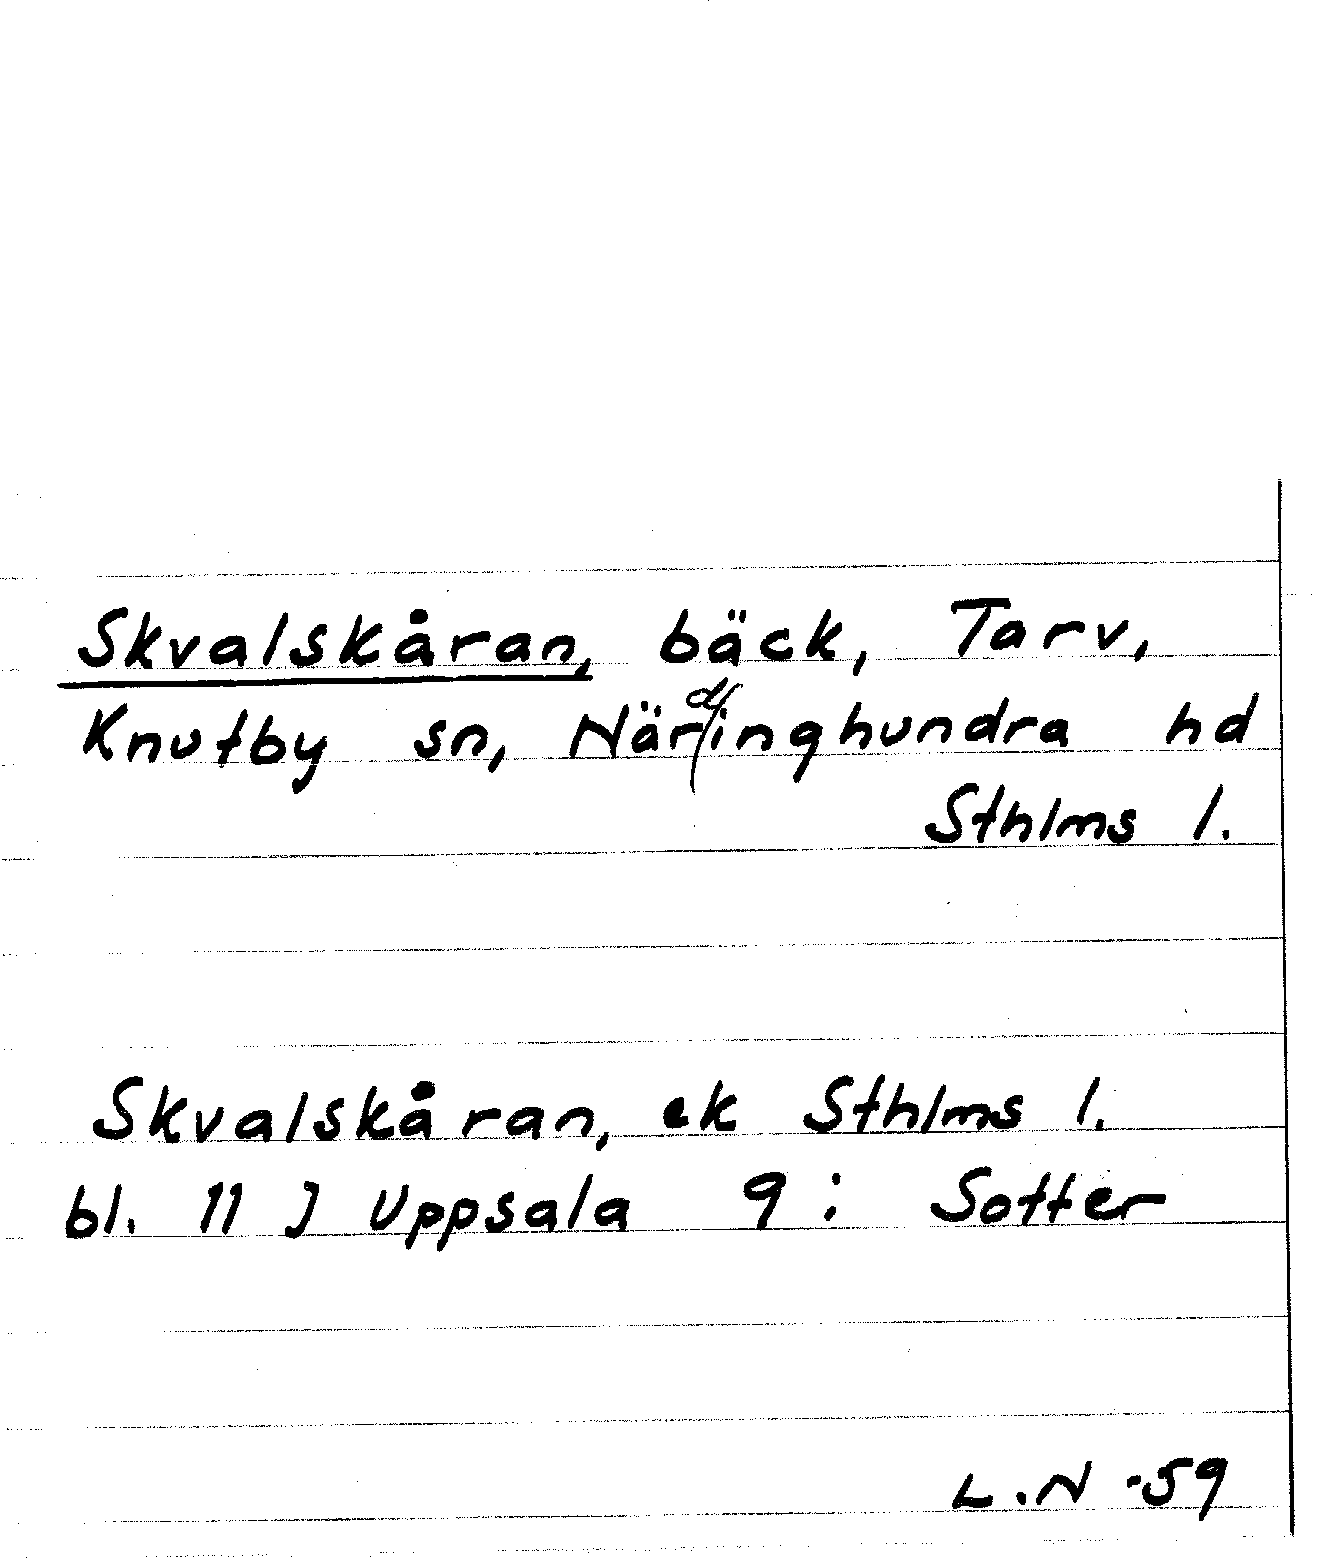 Skvalskåran, bäck, Tarv,
Knutby sn, Närdinghundra hd
Sthlms l.
Skvalskåran, ek Sthlms l.
bl. 11 J Uppsala 9: Sotter
L.N -59